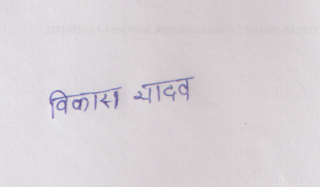 विकास यादव